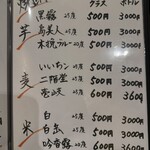 グラス ボトル
芋 黒霧 25度 500円 3000円
島美人 25度 500円 3000円
木挽ブルー 25度 500円 3000円
麦 いいちこ 25度 500円 3000円
二階堂 25度 500円 3000円
壱岐 25度 600円 3600
米 白 25度 500円 3000円
白岳 25度 500円 3000円
吟香露 600円 3600